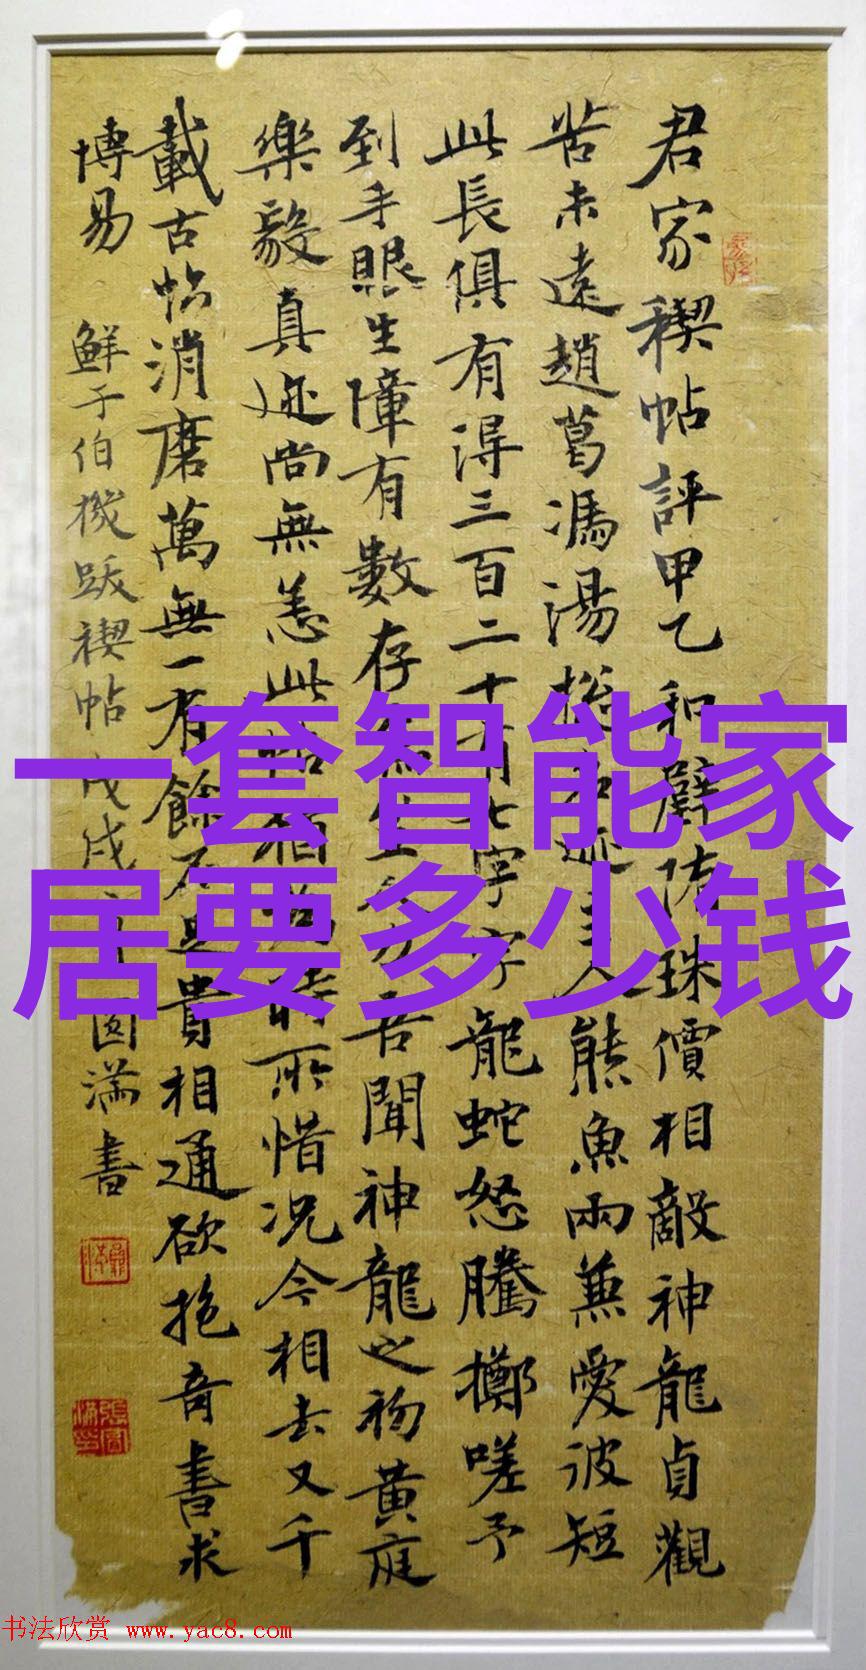 君家稧帖評甲乙和璧隋珠價相敵神龍貞觀
苦未遠趙葛馮湯揔名迹主人熊魚兩兼愛彼短
此長俱有得三百二十有七字字龍蛇怒騰擲嗟予
到手眼生障有數存人力吾聞神龍之初黃庭
樂毅真迹尚無恙此帖猶為時所惜況今相去又千
載古帖消磨萬無一有餘不足貴相通欲抱奇書求
博易 鮮于伯機跋禊帖 戊戌 圆满書
一套智能家
居要多少钱
书法欣赏 www.yac8.com